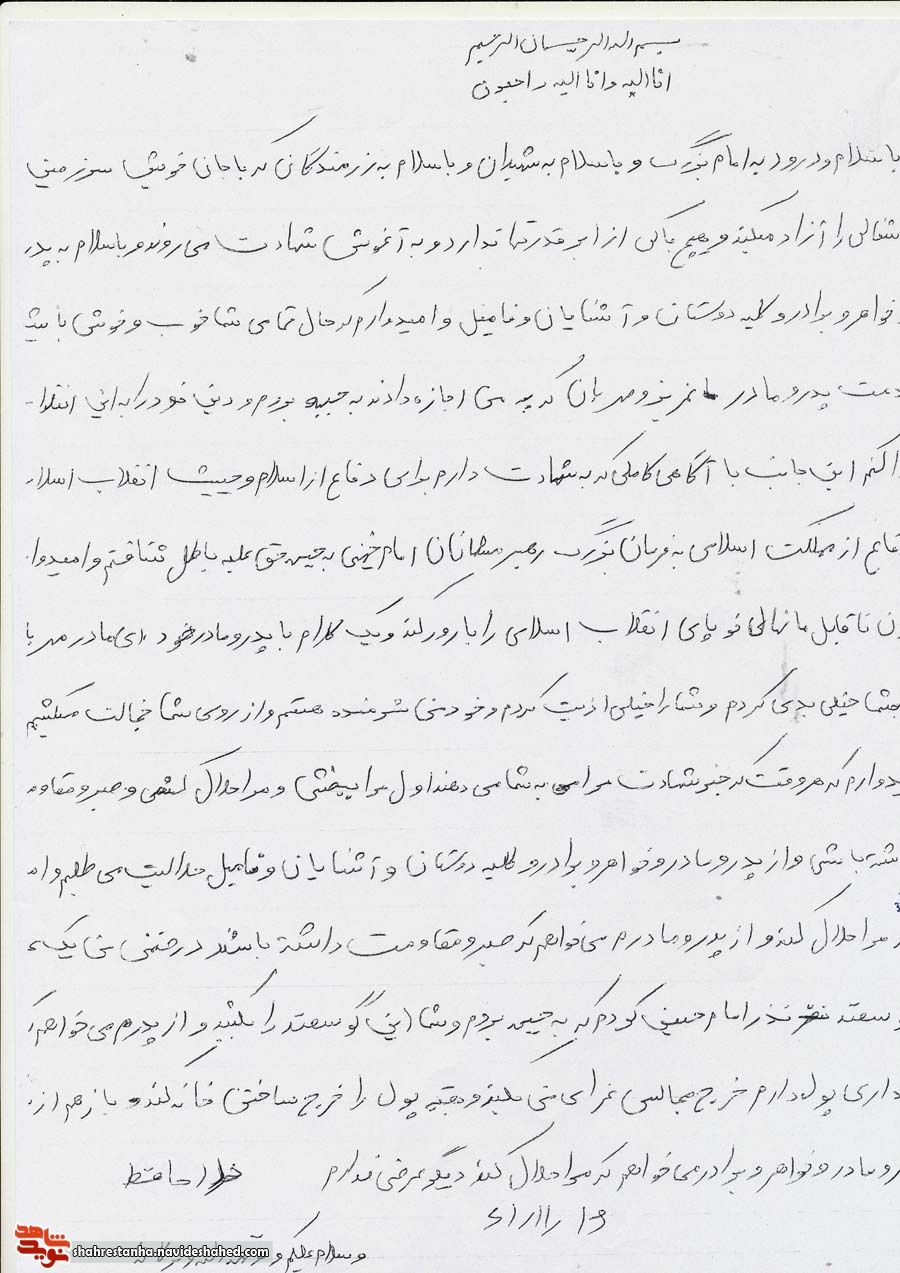 بسم الله الرحمان الرحیم
انا الیه و انا الیه راجعون
با سلام و درود به امام بزرگ و با سلام به شهیدان و با سلام به رزمندگان که با جان خویش سرزمین
را آزاد میکنند و هیچ باکی از ابر قدرتها ندارد و به آغوش شهادت می روند و با سلام به پدر
خواهر و برادر و کلیه دوستان و آشنایان و فامیل و امیدوارم که حال تمامی شما خوب و خوش باشد
پدر و مادر عزیز و مهربان که به من اجازه دادند به جبهه بروم و دین خود را به این انقلا
ا کنم این جانب با آگاهی کاملی که به شهادت دارم برای دفاع از اسلام و حیثیت انقلاب اسلا
فاع از مملکت اسلامی به فرمان بزرگ رهبر مسلمانان امام خمینی به جبهه حق علیه باطل شتافتم و امیدوا
ن ناقابل ما نهال نو پای انقلاب اسلامی را بارور کند و یک کلام با پدر و مادر خود ای مادر مهربا
خیلی بدی کردم و شما را خیلی اذیت کردم و خودم شرمنده هستم و از روی شما خجالت میکشیم
یدوارم که هر وقت که خبر شهادت مرا به شما می دهند اول مرا ببخشی و مرا حلال کنی و صبر و مقاوم
شته باشی و از پدر و مادر و خواهر و برادر و کلیه دوستان و آشنایان و فامیل حلالیت می طلبم و ام
مرا حلال کنند و از پدر و مادرم می خواهم که صبر و مقاومت داشته باشند در ضمن من یک
وسفند نذر امام حسین کردم که به جبهه بروم و شما این گوسفند را بکشید و از پدرم می خواهم
داری پول دارم خرج مجالس عزای من بکنید و بقیه پول را خرج ساختن خانه کند و باز هم از
ر و مادر و خواهر و برادر می خواهم که مرا حلال کنند دیگر عرضی ندارم خدا حافظ
و سلام علیکم و رحمة الله و برکاته
نوید شاهد
shahrestanha.navideshahed.com